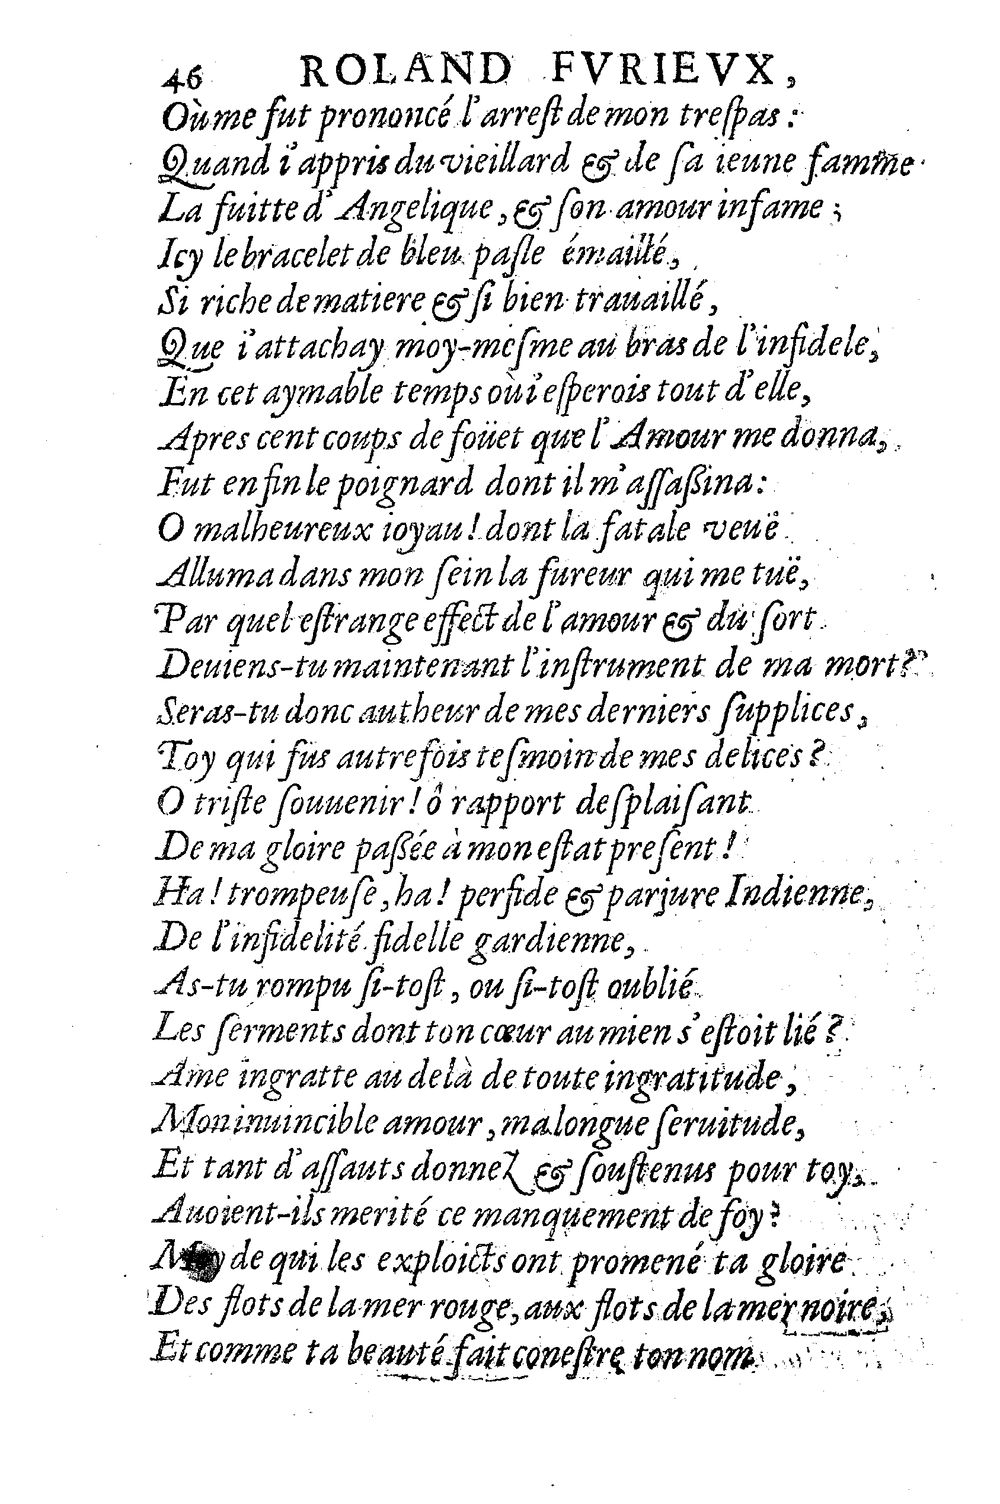 46 ROLAND FVRIEVX,
Où me fut prononcé l'arreſt de mon treſpas :
Quand i'appris du vieillard & de ſa ieune famme
La fuitte d'Angelique, & ſon amour infame ;
Icy le bracelet de bleu paſle émaillé,
Si riche de matiere & ſi bien trauaillé,
Que i'attachay moy-meſme au bras de l'infidele,
En cet aymable temps où i'eſperois tout d'elle,
Apres cent coups de foüet que l'Amour me donna,
Fut enfin le poignard dont il m'aſſaßina :
O malheureux ioyau ! dont la fatale veuë
Alluma dans mon ſein la fureur qui me tuë,
Par quel eſtrange effect de l'amour & du ſort
Deuiens-tu maintenant l'inſtrument de ma mort ?
Seras-tu donc autheur de mes derniers ſupplices,
Toy qui fus autrefois teſmoin de mes delices ?
O triſte ſouuenir ! ô rapport deſplaiſant
De ma gloire paßée à mon eſtat preſent !
Ha ! trompeuſe, ha ! perfide & parjure Indienne,
De l'infidelité fidelle gardienne,
As-tu rompu ſi-toſt, ou ſi-toſt oublié
Les ſerments dont ton cœur au mien s'eſtoit lié ?
Ame ingratte au delà de toute ingratitude,
Mon inuincible amour, ma longue ſeruitude,
Et tant d'aſſauts donnez & ſouſtenus pour toy,
Auoient-ils merité ce manquement de foy ?
Moy de qui les exploicts ont promené ta gloire
Des flots de la mer rouge, aux flots de la mer noire,
Et comme ta beauté fait coneſtre ton nom